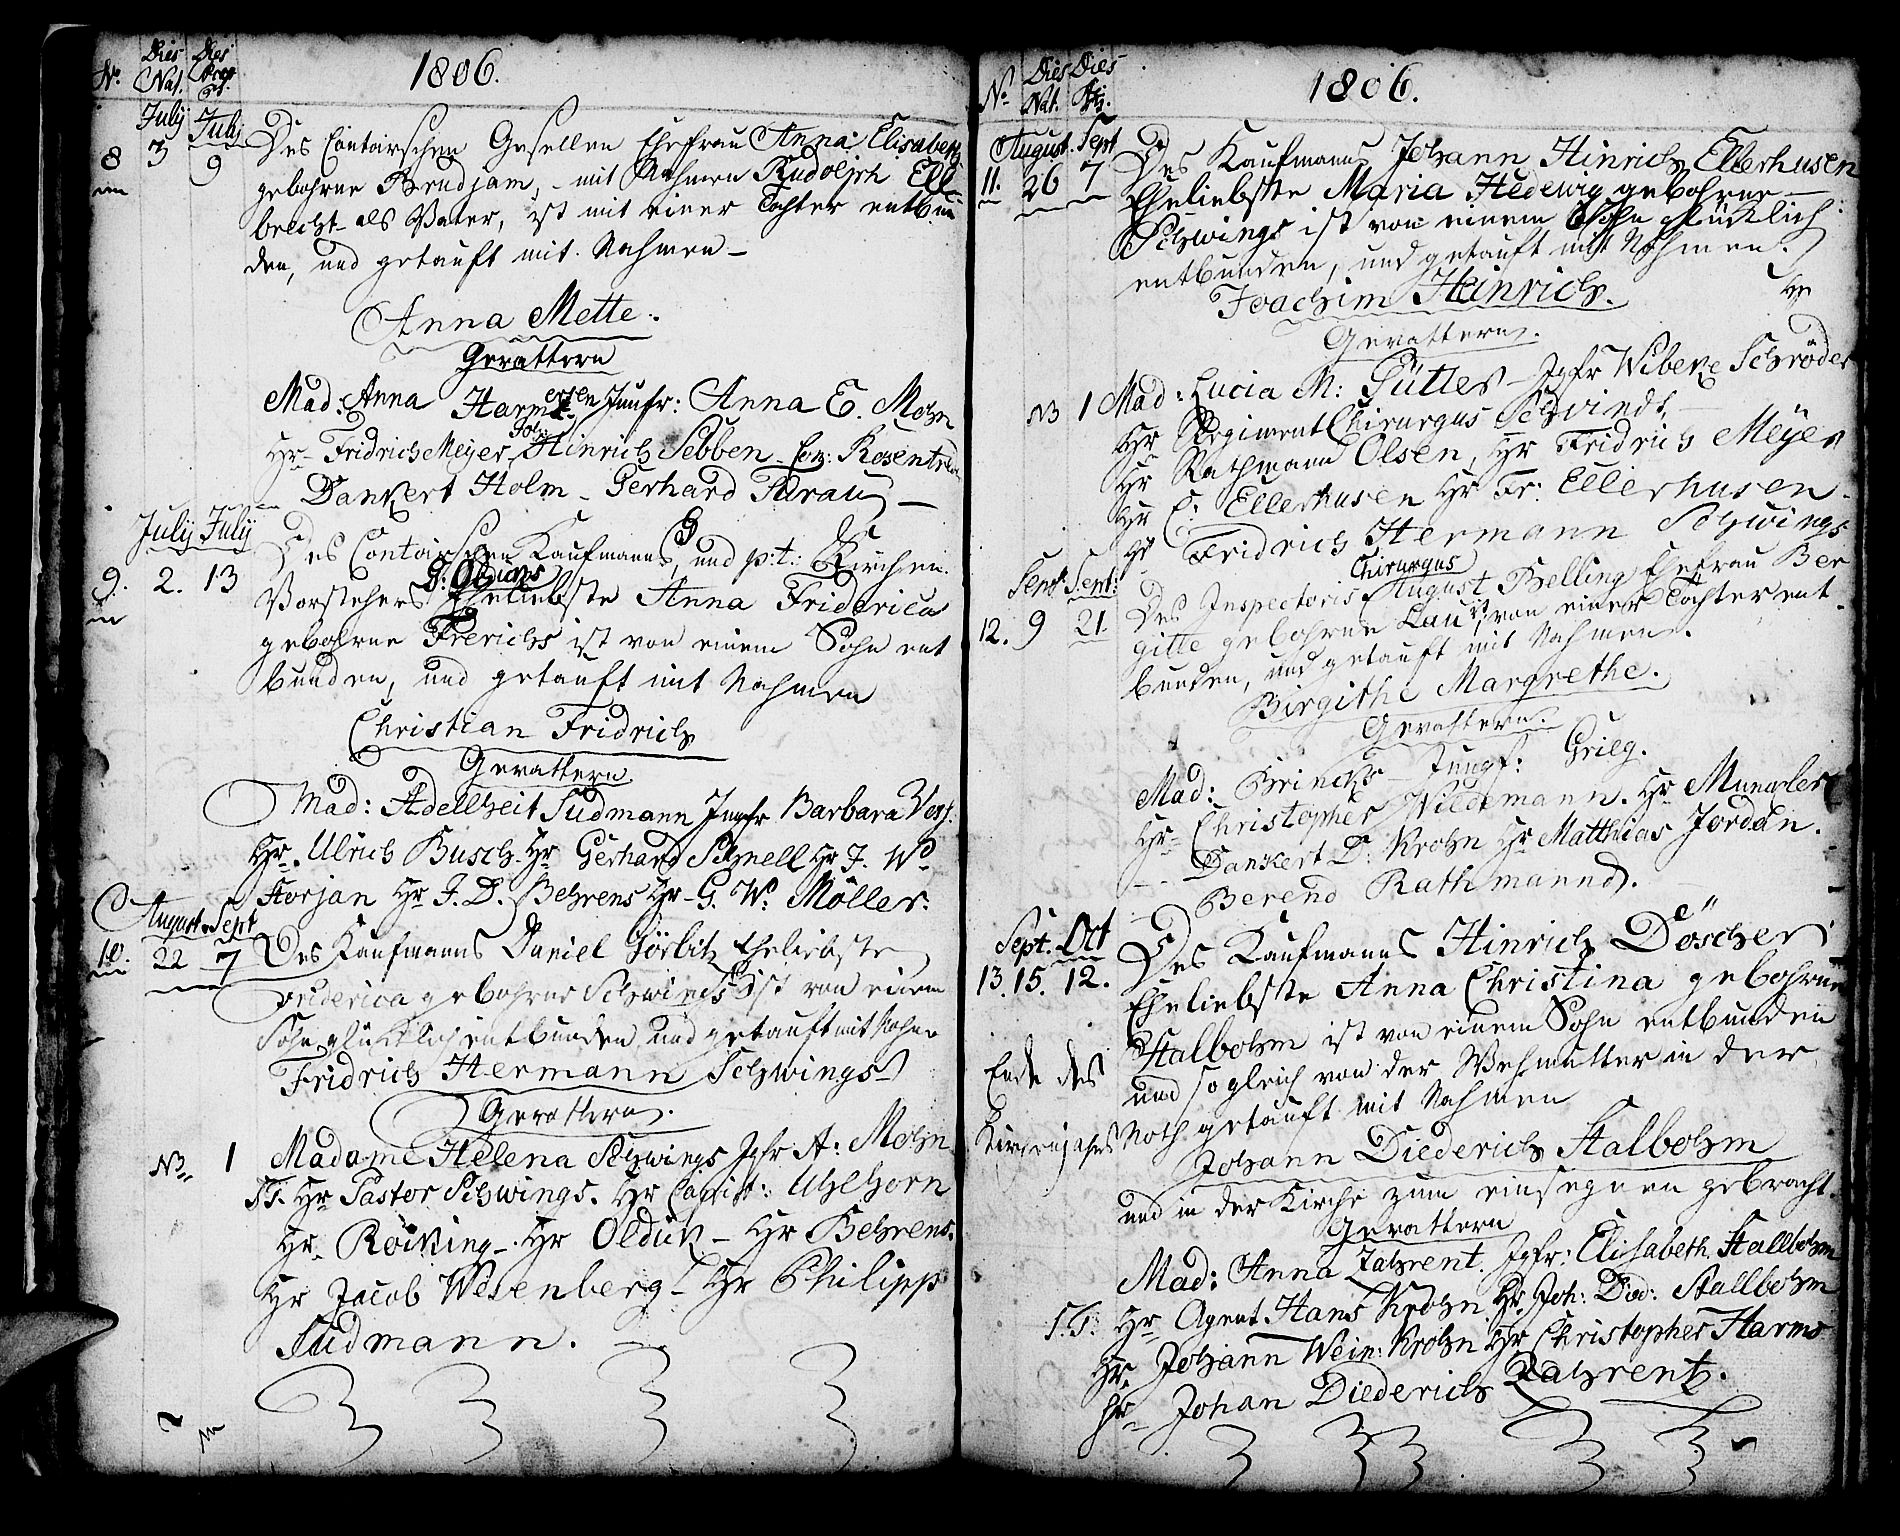 1806.
No. Dies Nat. Dies
July July
8 3 9
Des Contoirschen Gesellen Ehefrau Anna Elisabeth
gebohrne Brudjam, - mit Nahmen Rudolph Ell-
brecht als Vater, ist mit einer Tochter entbun
den, und getauft mit Nahmen -
Anna Mette.
Gevattern
Mad: Anna Harmersen Junfr: Anna E. Mohn
Hr- Fridrich Meyer, Joh: Hinrich Sebben
Dankert Holm - Gerhard
July July
9. 2. 13
Des Contoirschen Kaufmanns, und p:t: Kirchen.
Vorstehers Eheliebste Anna Friderica
gebohrne Frerichs ist von einem Sohn ent
bunden, und getauft mit Nahmen
Christian Fridrich
Gevattern
Mad: Adellheit Südmann Jngfr Barbara
Hr. Ulrich Busch - Hr Gerhard Schnell Hr J. W.
Forjan Hr J. D. Behrens Hr - G. W. Möller.
August. Sept
10. 22 7
Des Kaufmanns Daniel Görbitz Eheliebste
Friderica gebohrne Schwings ist von einem
Sohn glücklich entbunden und getauft mit Nahme
Fridrich Hermann Schwings
Gevattern.
NB. 1 Madame Helena Schwings Jgfr A: Mohn
S.T. Hr Pastor Schwings. Hr Uhlhorn
Hr. Röcking - Hr Olduk - Hr Behrens.
Hr Jacob Wesenberg - Hr Philipp
Südmann.
1806.
No Dies Nat. Dies
August. Sept
11. 26 7
Des Kaufmanns Johann Hinrich Ellerhusen
Eheliebste Maria Hedewig gebohrne -
Schwings ist von einem Sohn glücklich
entbunden, und getauft mit Nahmen.
Joachim Heinrich.
Gevattern.
NB 1 Mad: Lucia M: Gütter - Jgfr Wibeke Schröder
Hr Regiment Chirurgus Schvindt,
Hr Rathmann Olsen, Hr Fridrich Meyer
Hr C: Ellerhusen Hr Fr: Ellerhusen -
Hr Fridrich Hermann Schwings
Sept. Sept:
12. 9 21.
Chirurgus
Des Inspectoris August Belling Ehefrau Ber
gitte gebohrne, von einer Tochter ent
bunden, und getauft mit Nahmen.
Birgithe Margrethe.
Gevattern.
Mad: Brincks - Jungf: Grieg.
Hr- Christopher Wildemann. Hr
- Dankert D: Krohn Hr Matthias Jordan.
Berend Rathmannd.
Sept. Oct
13. 15. 12.
Des Kaufmanns Hinrich Döscher
Eheliebste Anna Christina gebohrne
Stalbohm ist von einem Sohn entbunden
und sogleich von der Wehmutter in der
Noth getauft mit Nahmen
Ende des
Kirchenjahrs
Johann Diederich Stalbohm
und in der Kirche zum einsegnen gebracht.
Gevattern
Mad: Anna Zahrent. Jgfr: Elisabeth Stallbohm
S.T. Hr- Agent Hans Krohn Hr. Joh: Died: Stallbohm
Hr. Johann Wein: Krohn Hr Christopher Harms
Hr- Johan Diederich Zahrentz.